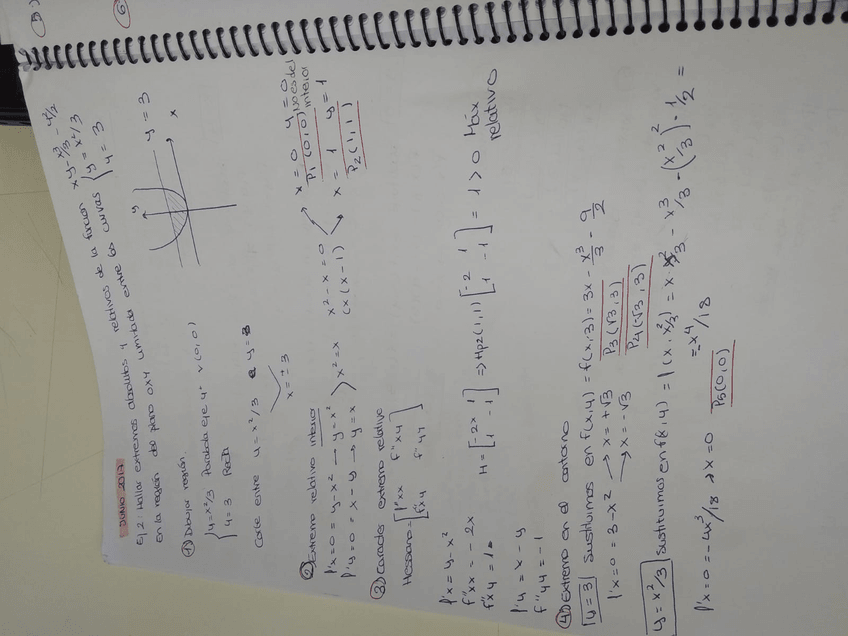 JUNIO 2017
Ej 2. Hallar extremos absolutos y relativos de la función xy - x³/3 - y²/2
en la región del plano OXY limitada entre las curvas { y = x²/3
y = 3
① Dibujar región.
{ y = x²/3 Parábola eje y⁺ v(0,0)
y = 3 Recta
y
x
y = 3
Corte entre y = x²/3 e y = 3
x = ±3
② Extremo relativo interior
f'x = 0 = y - x² → y = x²
f'y = 0 = x - y → y = x
x² = x
x² - x = 0
(x(x-1)
x = 0 y = 0
P1 (0,0) No es del interior
x = 1 y = 1
P2 (1,1)
③ Caracter extremo relativo
Hessiano = [f''xx f''xy
f''xy f''yy]
f'x = y - x²
f''xx = -2x
f''xy = 1
H = [-2x 1
1 -1] ⇒ Hp2(1,1) [-2 1
1 -1] = 1 > 0 Máx relativo
f'y = x - y
f''yy = -1
④ Extremo en el contorno
y = 3 Sustituimos en f(x,y) = f(x,3) = 3x - x³/3 - 9/2
f'x = 0 = 3 - x² → x = +√3 P3(√3,3)
→ x = -√3 P4(-√3,3)
y = x²/3 sustituimos en f(x,y) = f(x, x²/3) = x · x²/3 - x³/3 - (x²/3)² · 1/2 =
= -x⁴/18
f'x = 0 = -4x³/18 → x = 0 P5(0,0)